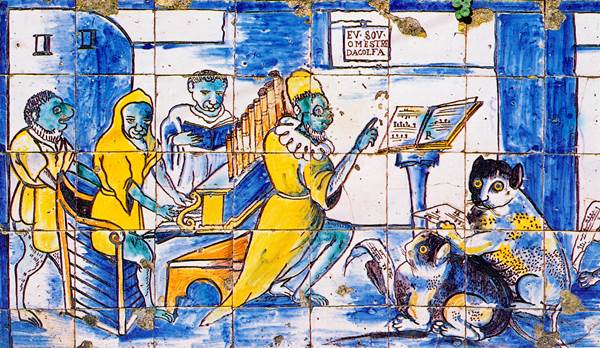 EV · SOV ·
O MESTRE
DACOLFA